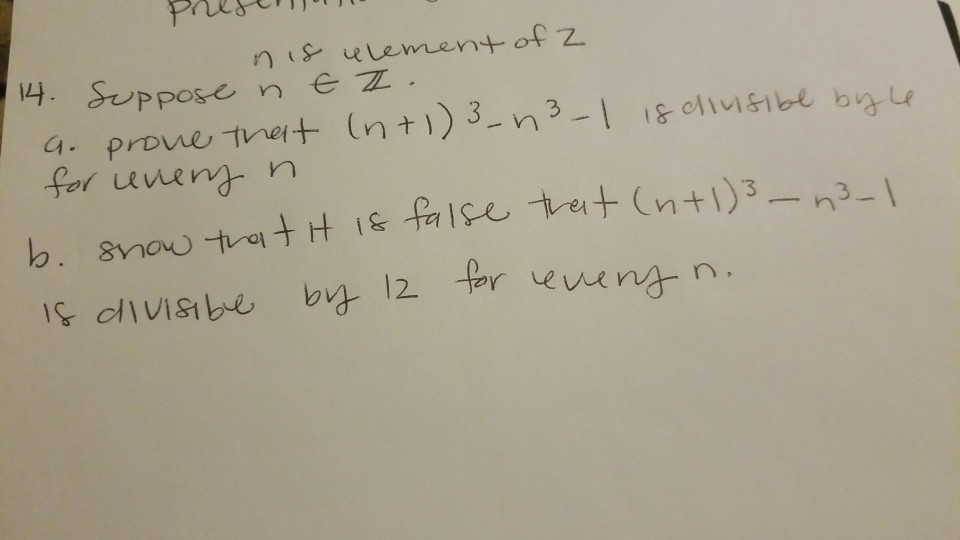 n is element of Z
14. Suppose n ∈ ℤ.
a. prove that (n+1)³-n³-1 is divisible by 6
for every n
b. show that it is false that (n+1)³-n³-1
is divisible by 12 for every n.